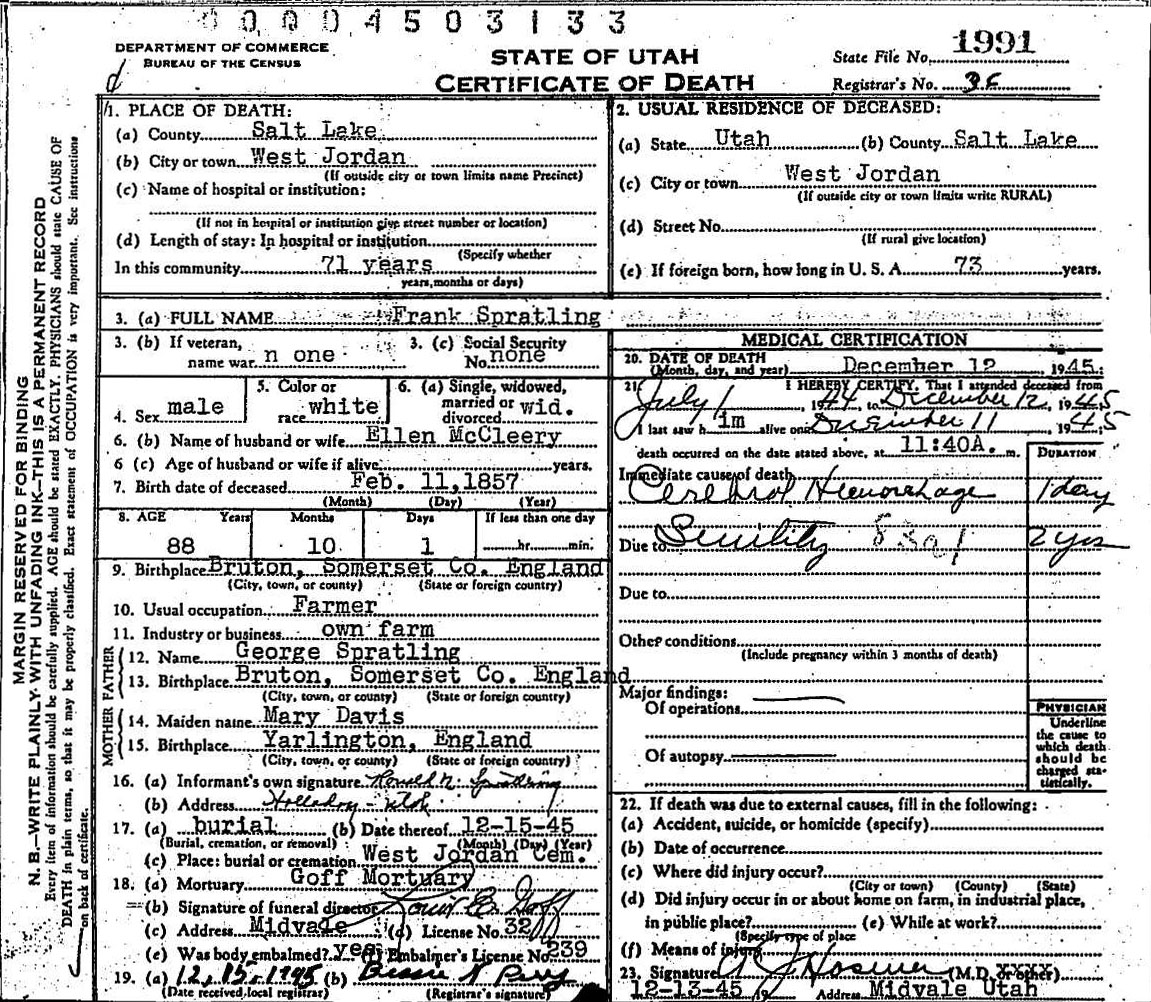 00004503133
DEPARTMENT OF COMMERCE
BUREAU OF THE CENSUS
STATE OF UTAH
CERTIFICATE OF DEATH
State File No. 1991
Registrar's No. 36
MARGIN RESERVED FOR BINDING
N. B.—WRITE PLAINLY WITH UNFADING INK—THIS IS A PERMANENT RECORD
Every item of information should be carefully supplied. AGE should be stated EXACTLY. PHYSICIANS should state CAUSE OF
DEATH in plain terms, so that it may be properly classified. Exact statement of OCCUPATION is very important. See instructions
on back of certificate.
1. PLACE OF DEATH:
(a) County Salt Lake
(b) City or town West Jordan
(If outside city or town limits name Precinct)
(c) Name of hospital or institution:
(If not in hospital or institution give street number or location)
(d) Length of stay: In hospital or institution
(Specify whether
In this community 71 years
years, months or days)
2. USUAL RESIDENCE OF DECEASED:
(a) State Utah (b) County Salt Lake
(c) City or town West Jordan
(If outside city or town limits write RURAL)
(d) Street No.
(If rural give location)
(e) If foreign born, how long in U. S. A 73 years.
3. (a) FULL NAME Frank Spratling
3. (b) If veteran,
name war n one
3. (c) Social Security
No. none
4. Sex male
5. Color or
race white
6. (a) Single, widowed,
married or
divorced wid.
6. (b) Name of husband or wife Ellen McCleery
6 (c) Age of husband or wife if alive years.
7. Birth date of deceased Feb. 11,1857
(Month) (Day) (Year)
8. AGE Years Months Days If less than one day
88 10 1 hr. min.
9. Birthplace Bruton, Somerset Co. England
(City, town, or county) (State or foreign country)
10. Usual occupation Farmer
11. Industry or business own farm
FATHER
12. Name George Spratling
13. Birthplace Bruton, Somerset Co. England
(City, town, or county) (State or foreign country)
MOTHER
14. Maiden name Mary Davis
15. Birthplace Yarlington, England
(City, town, or county) (State or foreign country)
16. (a) Informant's own signature Spratling
(b) Address Holladay - Utah
17. (a) burial (b) Date thereof 12-15-45
(Burial, cremation, or removal) (Month) (Day) (Year)
(c) Place: burial or cremation West Jordan Cem.
18. (a) Mortuary Goff Mortuary
(b) Signature of funeral director Goff
(c) Address Midvale (d) License No. 32
(e) Was body embalmed? yes (f) Embalmer's License No. 239
19. (a) 12.15.1945 (b) Bessie N Perry
(Date received local registrar) (Registrar's signature)
MEDICAL CERTIFICATION
20. DATE OF DEATH
(Month, day, and year) December 12 1945.
21. I HEREBY CERTIFY, That I attended deceased from
July 1, 1944 to December 12, 1945
I last saw him alive on December 11 1945
death occurred on the date stated above, at 11:40A. m.
DURATION
Immediate cause of death
Cerebral Hemorrhage 1 day
Due to Senility 83a1 2 yrs
Due to
Other conditions
(Include pregnancy within 3 months of death)
Major findings:
Of operations
Of autopsy
PHYSICIAN
Underline
the cause to
which death
should be
charged sta-
tistically.
22. If death was due to external causes, fill in the following:
(a) Accident, suicide, or homicide (specify)
(b) Date of occurrence
(c) Where did injury occur?
(City or town) (County) (State)
(d) Did injury occur in or about home on farm, in industrial place,
in public place? (e) While at work?
(Specify type of place
(f) Means of injury
23. Signature Hosmer (M.D. XXXX
12-13-45 19 Address Midvale Utah